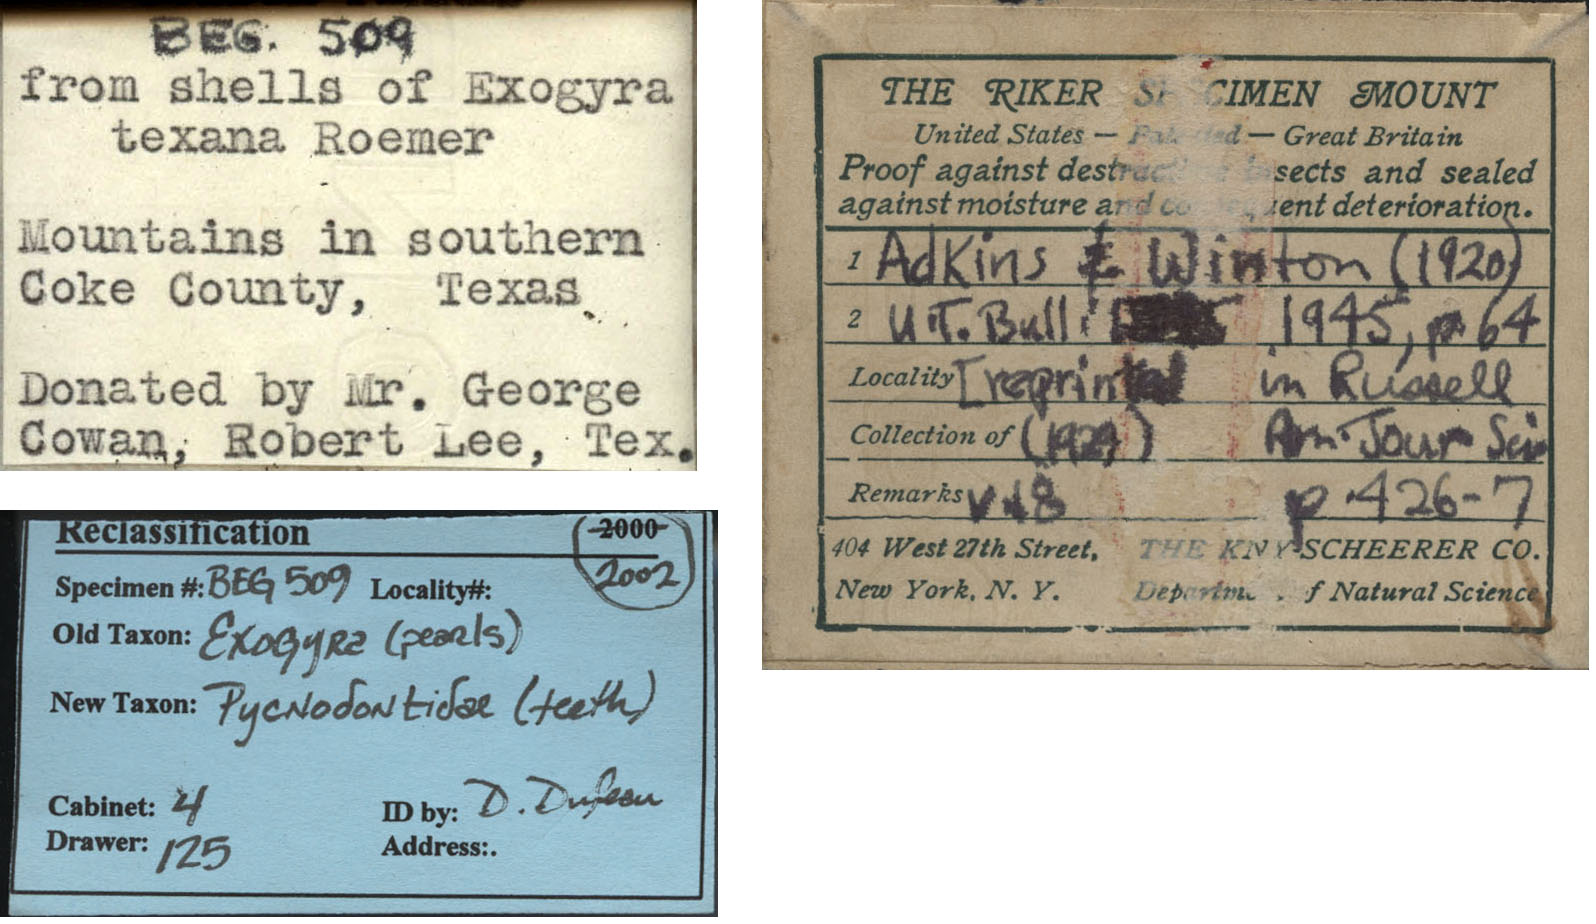 BEG. 509
from shells of Exogyra
texana Roemer
Mountains in southern
Coke County, Texas
Donated by Mr. George
Cowan, Robert Lee, Tex.
THE RIKER SPECIMEN MOUNT
United States — Patented — Great Britain
Proof against destructive insects and sealed
against moisture and consequent deterioration.
1 Adkins & Winton (1920)
2 U.T. Bull. 1945, p. 64
Locality [reprinted in Russell
Collection of (1929) Am. Jour Sci
Remarks v. 18 p. 426-7
404 West 27th Street, THE KNY-SCHEERER CO.
New York, N. Y. Department of Natural Science
Reclassification 2000
2002
Specimen #: BEG 509 Locality#:
Old Taxon: Exogyra (pearls)
New Taxon: Pycnodontidae (teeth)
Cabinet: 4 ID by: D. Dufeau
Drawer: 125 Address:.